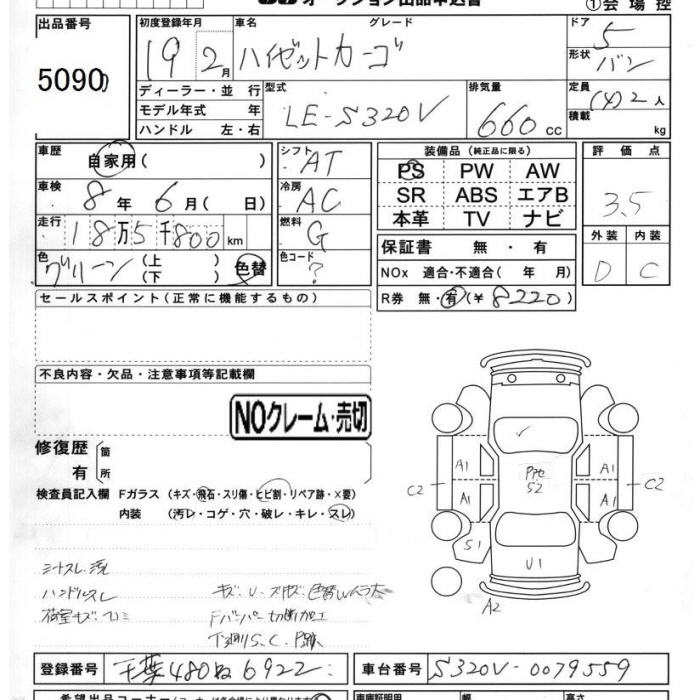 オークション出品申込書
①会場控
出品番号 初度登録年月 車名 グレード ドア 5
5090 19 2月 ハイゼットカーゴ 形状 バン
ディーラー・並行 型式 排気量 定員 (4)2人
モデル年式 年 LE-S320V 660cc 積載 kg
ハンドル 左・右
車歴 自家用( ) シフト AT 装備品(純正品に限る) 評価点
PS PW AW
車検 8年 6月( 日) 冷房 AC SR ABS エアB 3.5
本革 TV ナビ
走行 18万5千800km 燃料 G 保証書 無・有 外装 内装
色 グリーン (上 ) (下 ) 色替 色コード ? NOx 適合・不適合( 年 月) D C
R券 無・有(¥8220)
セールスポイント(正常に機能するもの)
不良内容・欠品・注意事項等記載欄
NOクレーム・売切
修復歴 箇
有 所
検査員記入欄 Fガラス (キズ・飛石・スリ傷・ヒビ割・リペア跡・×要)
内装 (汚レ・コゲ・穴・破レ・キレ・スレ)
A1 A1
C2 C2
A1 A1
S2
S1
U1
A2
シートスレ
ハンドルスレ
Fバンパー切断加工
下廻りS.C.
登録番号 千葉480ね6922 車台番号 S320V-0079559